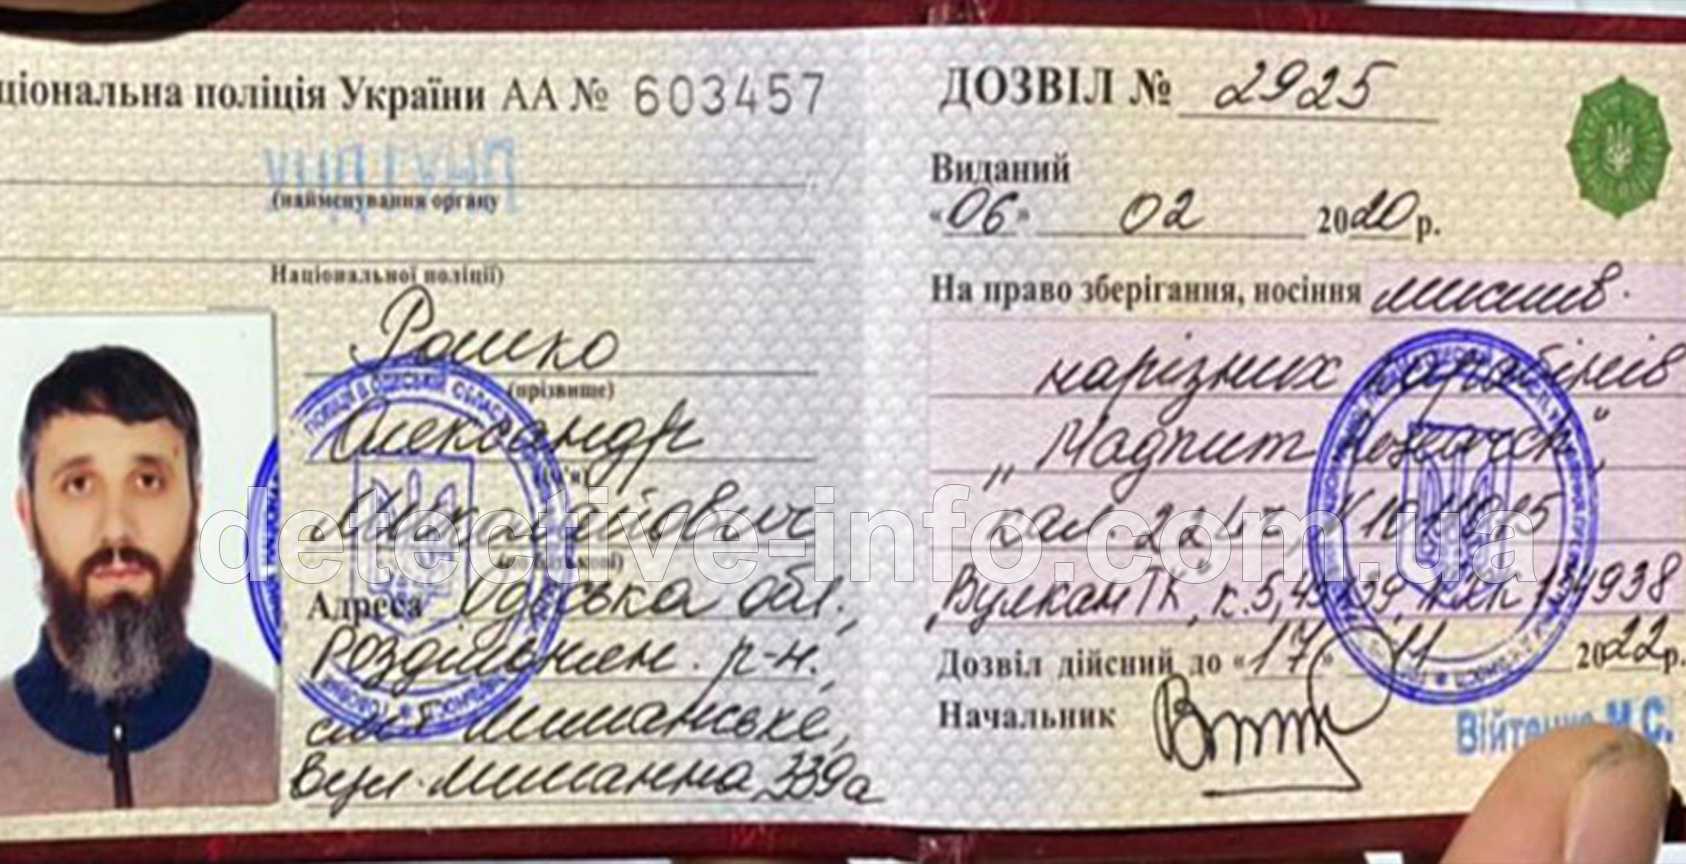 ціональна поліція України АА № 603457
(найменування органу
Національної поліції)
Рошко
(прізвище)
Олександр
Миколайович
Адреса Одеська обл.,
Роздільнян. р-н.,
Лиманське,
вул. 339а
ДОЗВІЛ № 2925
Виданий
«06» 02 2020 р.
На право зберігання, носіння мислив.
нарізних карабінів
кал. 22
„Вулкан ТК", к. 5,45х39,
Дозвіл дійсний до «17» 11 2022 р.
Начальник
М.С.
detective-info.com.ua